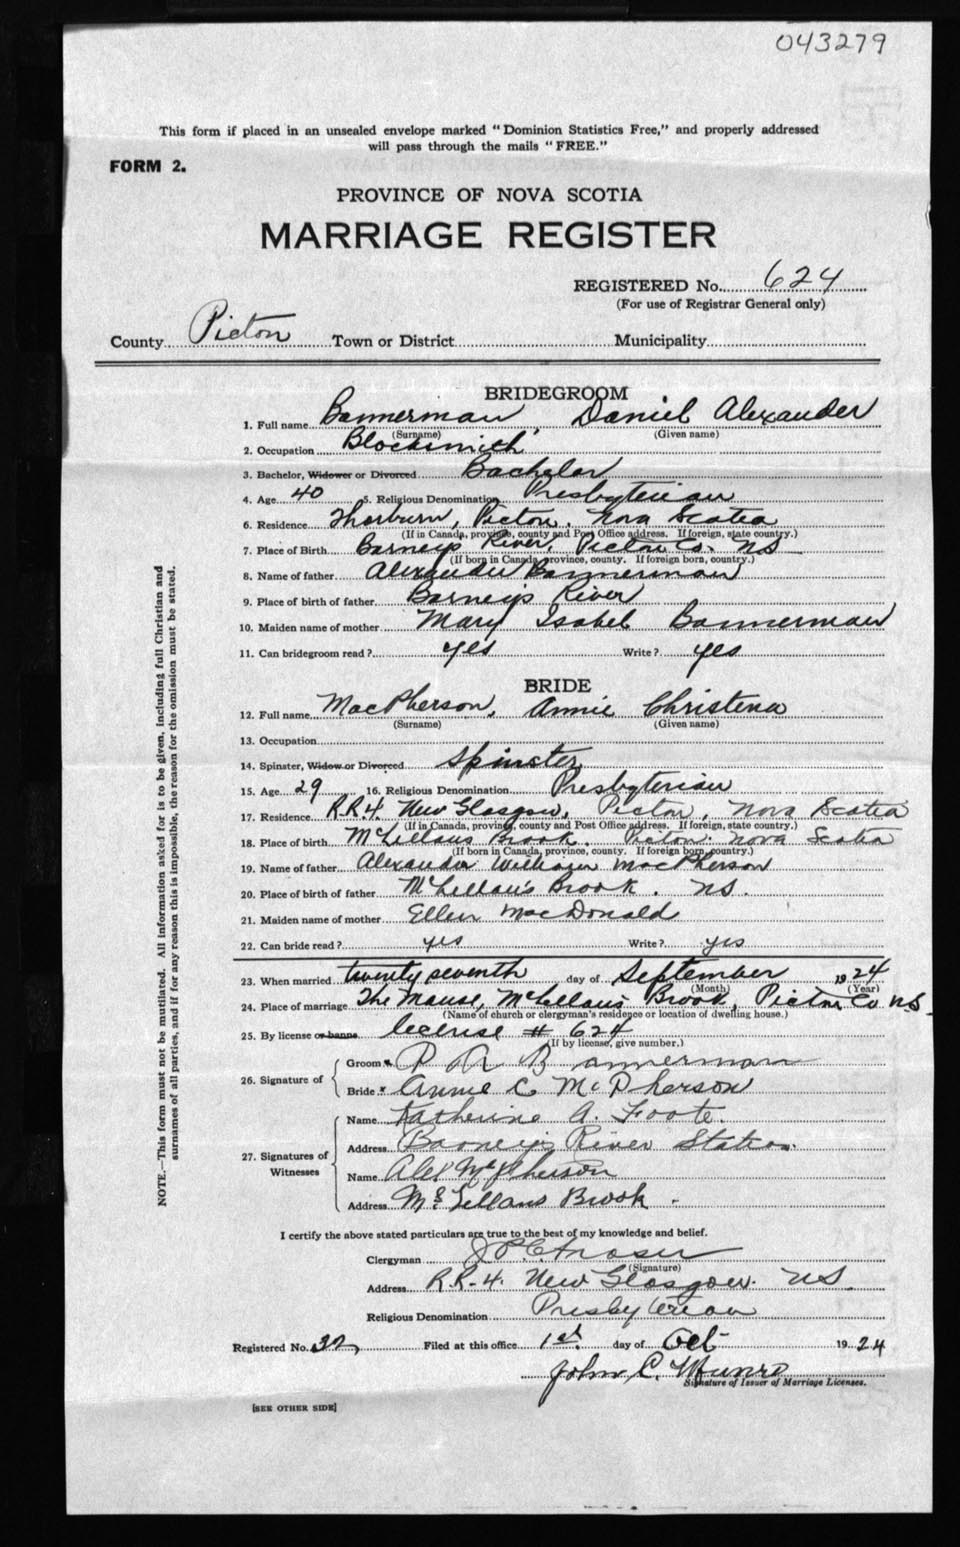 043279
This form if placed in an unsealed envelope marked "Dominion Statistics Free," and properly addressed
will pass through the mails "FREE."
FORM 2.
PROVINCE OF NOVA SCOTIA
MARRIAGE REGISTER
REGISTERED No. 624
(For use of Registrar General only)
County Pictou Town or District Municipality
BRIDEGROOM
1. Full name Bannerman, Daniel Alexander
(Surname) (Given name)
2. Occupation Blacksmith
3. Bachelor, Widower or Divorced Bachelor
4. Age 40 5. Religious Denomination Presbyterian
6. Residence Thorburn, Pictou, Nova Scotia
(If in Canada, province, county and Post Office address. If foreign, state country.)
7. Place of Birth Barneys River, Pictou Co. NS
(If born in Canada, province, county. If foreign born, country.)
8. Name of father Alexander Bannerman
9. Place of birth of father Barneys River
10. Maiden name of mother Mary Isabel Bannerman
11. Can bridegroom read? yes Write? yes
BRIDE
12. Full name MacPherson, Annie Christena
(Surname) (Given name)
13. Occupation
14. Spinster, Widow or Divorced Spinster
15. Age 29 16. Religious Denomination Presbyterian
17. Residence R.R.4. New Glasgow, Pictou, Nova Scotia
(If in Canada, province, county and Post Office address. If foreign, state country.)
18. Place of birth McLellans Brook, Pictou. Nova Scotia
(If born in Canada, province, county. If foreign born, country.)
19. Name of father Alexander William MacPherson
20. Place of birth of father McLellan's Brook. NS.
21. Maiden name of mother Ellen MacDonald
22. Can bride read? yes Write? yes
23. When married twenty seventh day of September 1924
(Month) (Year)
24. Place of marriage The Manse, McLellan's Brook, Pictou Co. N.S.
(Name of church or clergyman's residence or location of dwelling house.)
25. By license or banns license # 624
(If by license, give number.)
26. Signature of
Groom x Bannerman
Bride x Annie C McPherson
27. Signatures of Witnesses
Name Katherine A. Foote.
Address Barney's River Station.
Name Alex McPherson
Address McLellans Brook.
I certify the above stated particulars are true to the best of my knowledge and belief.
Clergyman Fraser
(Signature)
Address R.R.4. New Glasgow. NS.
Religious Denomination Presbyterian
Registered No. 32 Filed at this office 1st. day of Oct 1924
John C. Munro
Signature of Issuer of Marriage Licenses.
[SEE OTHER SIDE]
NOTE.—This form must not be mutilated. All information asked for is to be given, including full Christian and
surnames of all parties, and if for any reason this is impossible, the reason for the omission must be stated.